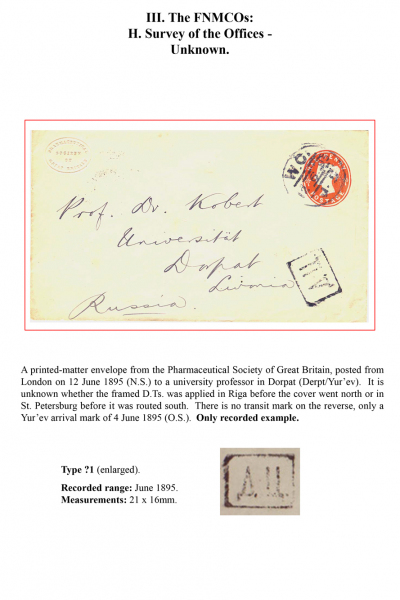 III. The FNMCOs:
H. Survey of the Offices -
Unknown.
W.C.
Prof. Dr. Kobert
Universität
Dorpat
Livonia
Russia.
A printed-matter envelope from the Pharmaceutical Society of Great Britain, posted from
London on 12 June 1895 (N.S.) to a university professor in Dorpat (Derpt/Yur’ev). It is
unknown whether the framed D.Ts. was applied in Riga before the cover went north or in
St. Petersburg before it was routed south. There is no transit mark on the reverse, only a
Yur’ev arrival mark of 4 June 1895 (O.S.). Only recorded example.
Type ?1 (enlarged).
Recorded range: June 1895.
Measurements: 21 x 16mm.
Д.Ц.